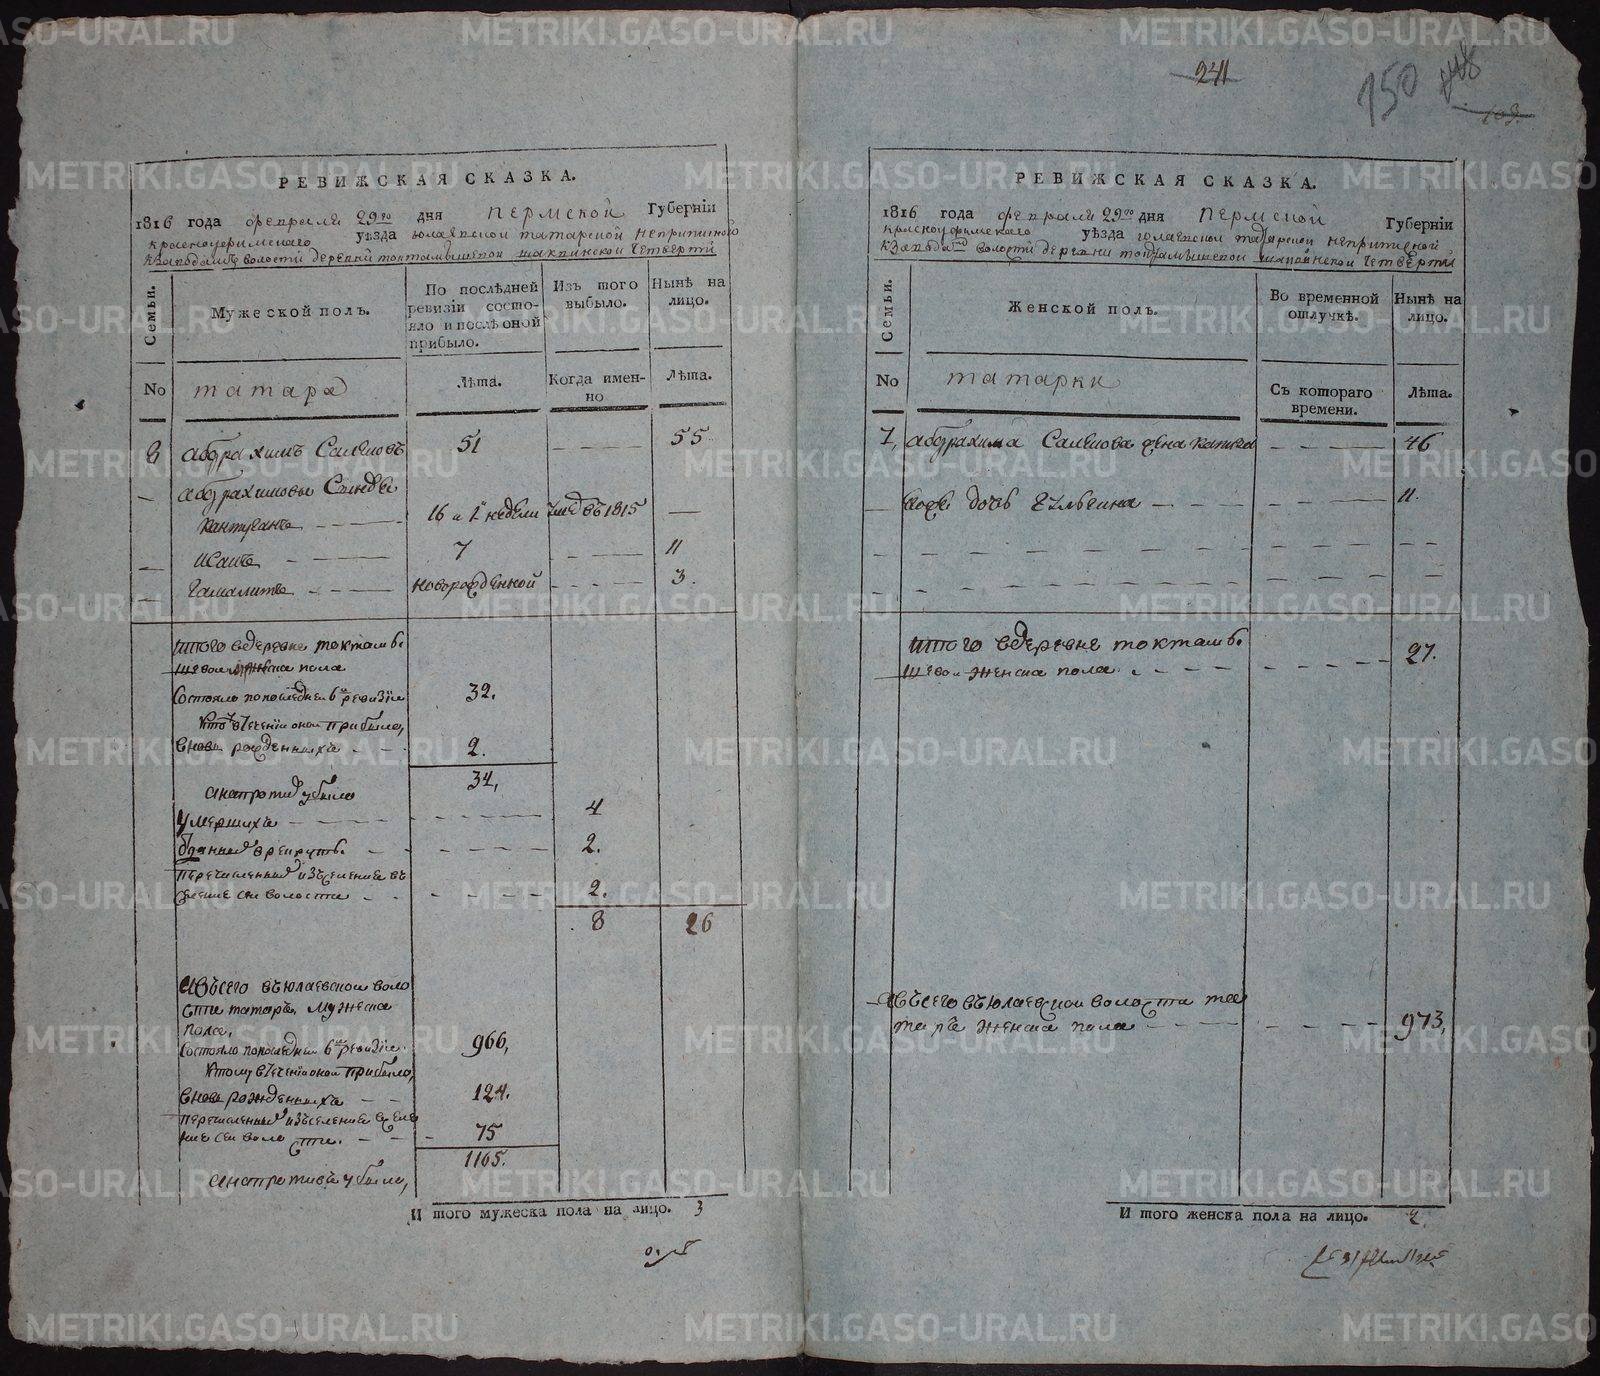 241
150
103.
РЕВИЖСКАЯ СКАЗКА.
1816 года февраля 29го дня Пермской Губернїи
красноуфимского уѣзда юлаевской татарской неприписной
к заводамъ волости деревни токтамышевой шакшинской четверти
Семьи.
Мужеской полъ.
По послѣдней ревизїи состо-
яло и послѣ оной
прибыло.
Изъ того
выбыло.
Нынѣ на
лицо.
No
татара
Лѣта.
Когда имен-
но
Лѣта.
8 абдрахимъ Салемовъ 51 55
абдрахимовы
16 въ 1815
7 11
новорожденной 3.
итого в деревне токтамы-
шевой мужеска пола
Состояло по последней 6й ревизїи 32.
прибыло,
вновь рожденныхъ 2.
34,
а напротив убыло
умершихъ 4
2.
волости 2.
8 26
а всего въ юлаевской воло
сти татаръ мужеска
пола,
Состояло по последней 6й ревизїи 966,
к тому в течении оной прибыло,
вновь рожденныхъ 124.
перечисленныя из селение в селе
ние сей волости. 75
1165.
а напротивъ убыло,
И того мужеска пола на лицо. 3
РЕВИЖСКАЯ СКАЗКА.
1816 года февраля 29го дня Пермской Губернїи
красноуфимского уѣзда юлаевской татарской неприписной
к заводамъ волости деревни токтамышевой шакшинской четверти
Семьи.
Женской полъ.
Во временной
отлучкѣ.
Нынѣ на
лицо.
No
татарки
Съ котораго
времени.
Лѣта.
7, абдрахима Салемова жена 46
дочь 11.
итого в деревне токтамы-
шевой женска пола 27.
а всего въ юлаевской волости та
таръ женска пола 973,
И того женска пола на лицо. 2.